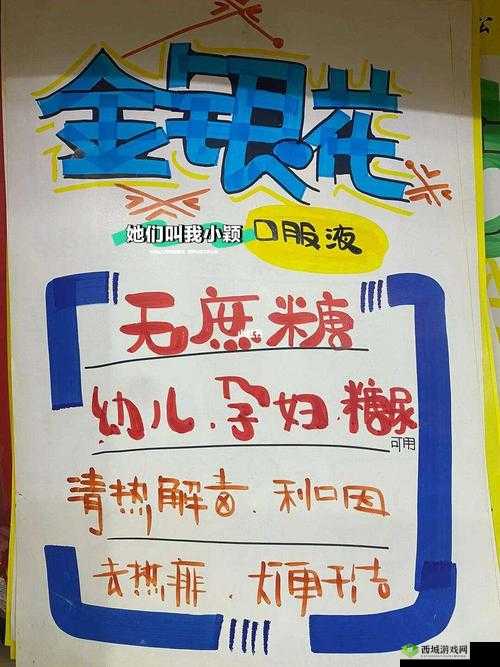 公
金银花
她们叫我小颖 口服液
无庶糖
幼儿.孕妇.糖尿
可用
清热解毒.利咽
去热痱.大便干结
西城游戏网